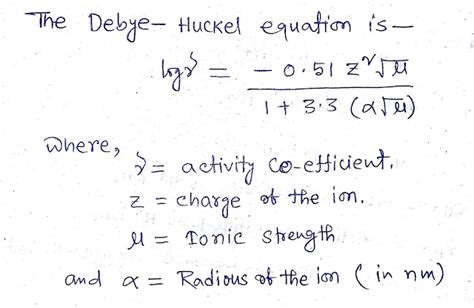 The Debye- Huckel equation is—
log γ = - 0.51 z²√μ / 1 + 3.3 (α√μ)
where,
γ = activity co-efficient.
z = charge of the ion.
μ = Ionic strength
and α = Radious of the ion (in nm)